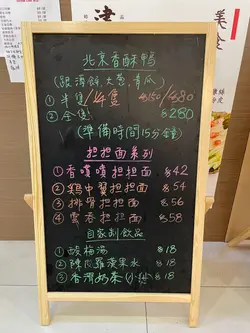 北京香酥鴨
(跟薄餅、大葱、青瓜)
① 半隻/¼隻 $150/$80
② 全隻 $280
(準備時間15分鐘)
担担面系列
① 香噴噴担担面 $42
② 鷄中翼担担面 $54
③ 排骨担担面 $56
④ 雲吞担担面 $58
自家制飲品
① 酸梅湯 $18
② 陳皮羅漢果水 $18
③ 香濃奶茶 $18